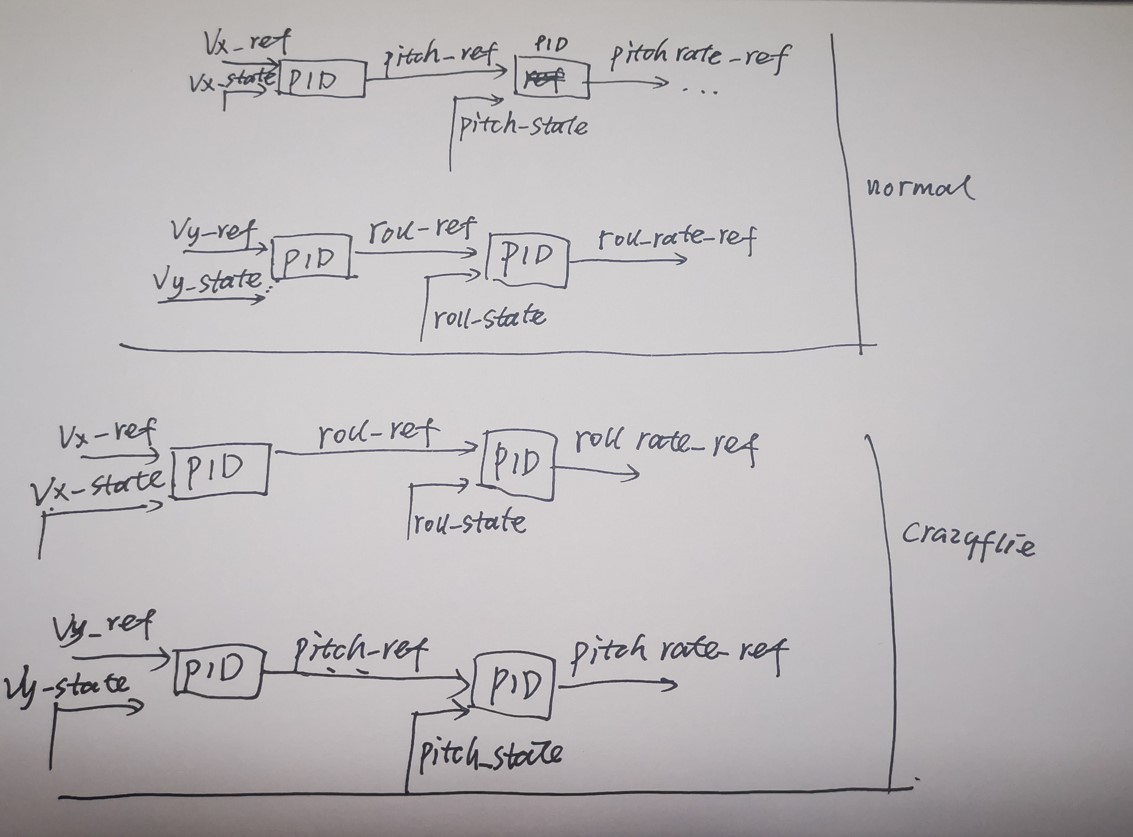 Vx_ref
Vx-state
PID
pitch_ref
PID
pitch rate_ref
...
pitch-state
normal
Vy-ref
Vy_state
PID
roll-ref
PID
roll_rate_ref
roll-state
Vx-ref
Vx-state
PID
roll-ref
PID
roll rate_ref
roll-state
crazyflie
Vy_ref
Vy-state
PID
pitch-ref
PID
pitch rate_ref
pitch_state